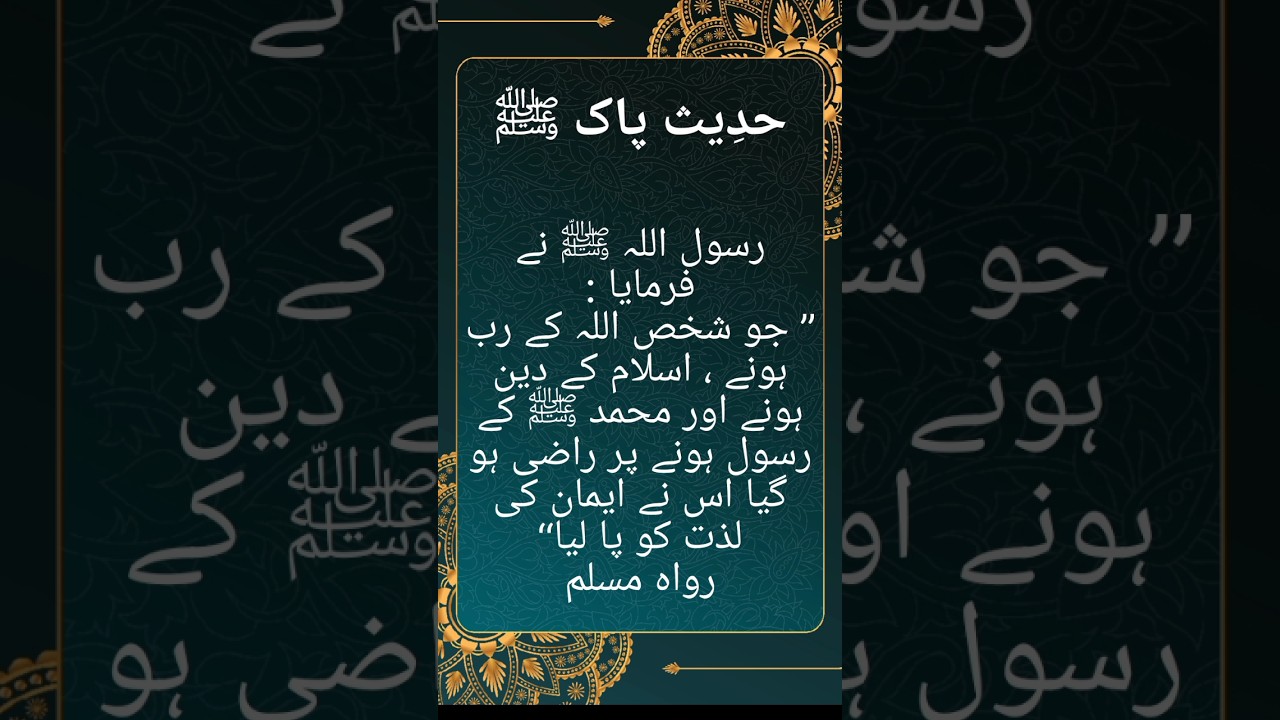 حدِیث پاک ﷺ
رسول اللہ ﷺ نے
فرمایا :
” جو شخص اللہ کے رب
ہونے ، اسلام کے دین
ہونے اور محمد ﷺ کے
رسول ہونے پر راضی ہو
گیا اس نے ایمان کی
لذت کو پا لیا“
رواہ مسلم